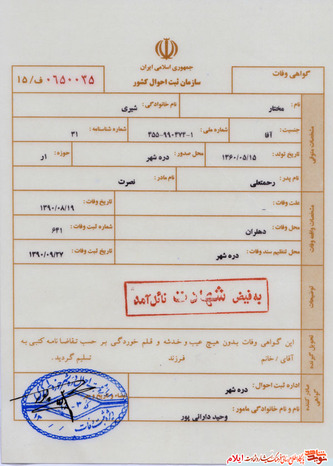 گواهی وفات
جمهوری اسلامی ایران
سازمان ثبت احوال کشور
۰۶۵۰۰۲۵ ف/۱۵
مشخصات متوفی
نام: مختار
نام خانوادگی: شیری
جنسیت: آقا
شماره ملی: ۴۵۵-۹۹۰۳۷۴-۱
شماره شناسنامه: ۳۱
تاریخ تولد: ۱۳۶۰/۰۵/۱۵
محل صدور: دره شهر
حوزه: ار
نام پدر: رحمتعلی
نام مادر: نصرت
مشخصات واقعه وفات
علت وفات: -
تاریخ وفات: ۱۳۹۰/۰۸/۱۹
محل وفات: دهلران
شماره ثبت وفات: ۶۴۱
محل تنظیم سند وفات: دره شهر
تاریخ ثبت وفات: ۱۳۹۰/۰۹/۲۷
توضیحات
به فیض شهادت نائل آمد
تحویل گیرنده
این گواهی وفات بدون هیچ عیب و خدشه و قلم خوردگی بر حسب تقاضانامه کتبی به
آقای / خانم فرزند تسلیم گردید.
گواهی
اداره ثبت احوال: دره شهر
نام و نام خانوادگی مامور: وحید دارائی پور
ایلام